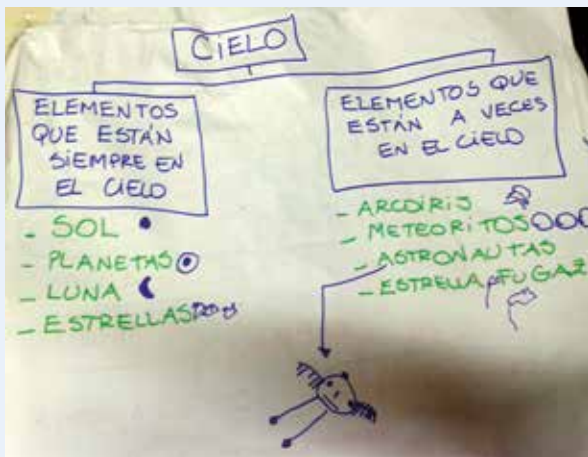 CIELO
ELEMENTOS
QUE ESTÁN
SIEMPRE EN
EL CIELO
- SOL
- PLANETAS
- LUNA
- ESTRELLAS
ELEMENTOS QUE
ESTÁN A VECES
EN EL CIELO
- ARCOÍRIS
- METEORITOS
- ASTRONAUTAS
- ESTRELLA FUGAZ